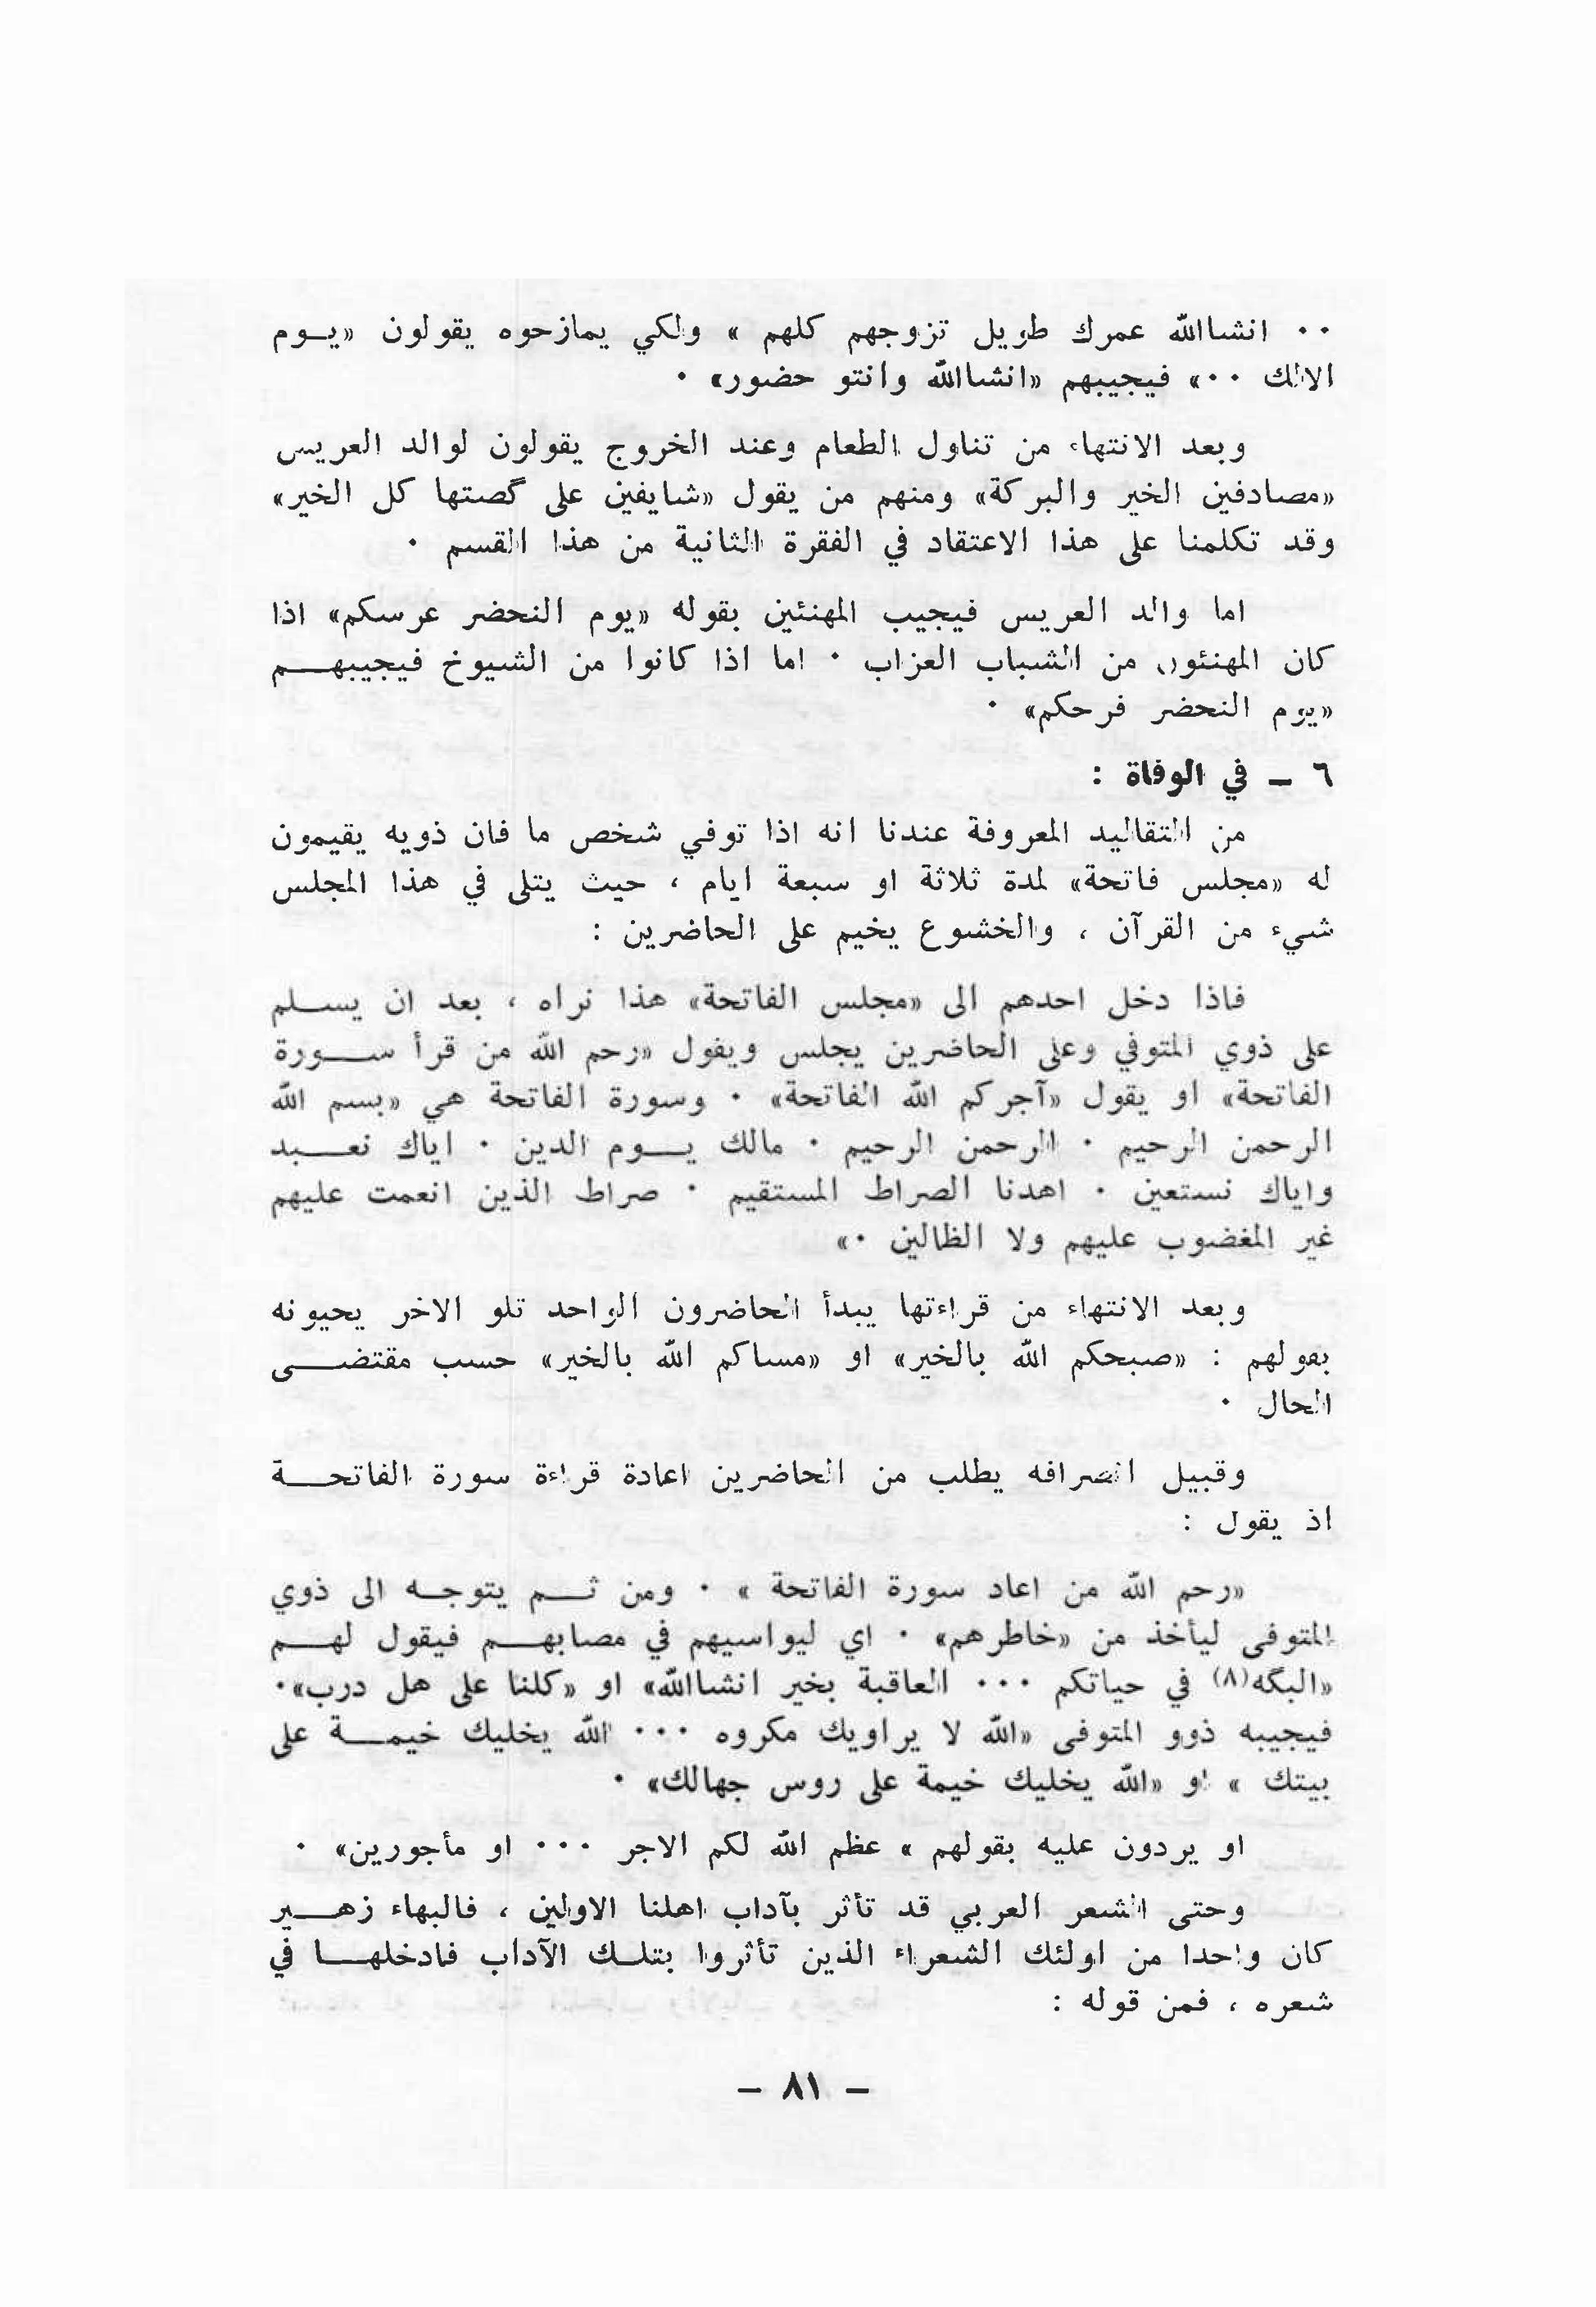 ٠٠ انشاالله عمرك طويل تزوجهم كلهم » ولكي يمازحوه يقولون «يــوم
الالك ٠٠» فيجيبهم «انشاالله وانتو حضور» ٠
وبعد الانتهاء من تناول الطعام وعند الخروج يقولون لوالد العريس
«مصادفين الخير والبركة» ومنهم من يقول «شايفين على گصتها كل الخير»
وقد تكلمنا على هذا الاعتقاد في الفقرة الثانية من هذا القسم ٠
اما والد العريس فيجيب المهنئين بقوله «يوم النحضر عرسكم» اذا
كان المهنئون من الشباب العزاب ٠ اما اذا كانوا من الشيوخ فيجيبهــم
«يوم النحضر فرحكم» ٠
٦ – في الوفاة :
من التقاليد المعروفة عندنا انه اذا توفي شخص ما فان ذويه يقيمون
له «مجلس فاتحة» لمدة ثلاثة او سبعة ايام ، حيث يتلى في هذا المجلس
شيء من القرآن ، والخشوع يخيم على الحاضرين :
فاذا دخل احدهم الى «مجلس الفاتحة» هذا نراه ، بعد ان يســلم
على ذوي المتوفي وعلى الحاضرين يجلس ويقول «رحم الله من قرأ ســورة
الفاتحة» او يقول «آجركم الله الفاتحة» ٠ وسورة الفاتحة هي «بسم الله
الرحمن الرحيم ٠ الرحمن الرحيم ٠ مالك يــوم الدين ٠ اياك نعــبد
واياك نستعين ٠ اهدنا الصراط المستقيم ٠ صراط الذين انعمت عليهم
غير المغضوب عليهم ولا الظالين ٠»
وبعد الانتهاء من قراءتها يبدأ الحاضرون الواحد تلو الاخر يحيونه
بقولهم : «صبحكم الله بالخير» او «مساكم الله بالخير» حسب مقتضــى
الحال ٠
وقبيل انصرافه يطلب من الحاضرين اعادة قراءة سورة الفاتحــة
اذ يقول :
«رحم الله من اعاد سورة الفاتحة » ٠ ومن ثــم يتوجــه الى ذوي
المتوفى ليأخذ من «خاطرهم» ٠ اي ليواسيهم في مصابهــم فيقول لهــم
«البگه(٨) في حياتكم ٠٠٠ العاقبة بخير انشاالله» او «كلنا على هل درب»٠
فيجيبه ذوو المتوفى «الله لا يراويك مكروه ٠٠٠ الله يخليك خيمــة على
بيتك » او «الله يخليك خيمة على روس جهالك» ٠
او يردون عليه بقولهم » عظم الله لكم الاجر ٠٠٠ او مأجورين» ٠
وحتى الشعر العربي قد تأثر بآداب اهلنا الاولين ، فالبهاء زهــير
كان واحدا من اولئك الشعراء الذين تأثروا بتلــك الآداب فادخلهــا في
شعره ، فمن قوله :
– ٨١ –